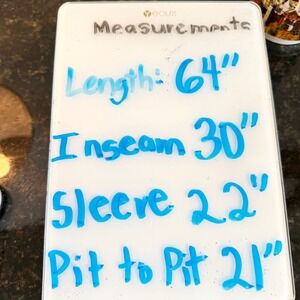 Measurements
Length: 64"
Inseam 30"
Sleeve 22"
Pit to Pit 21"